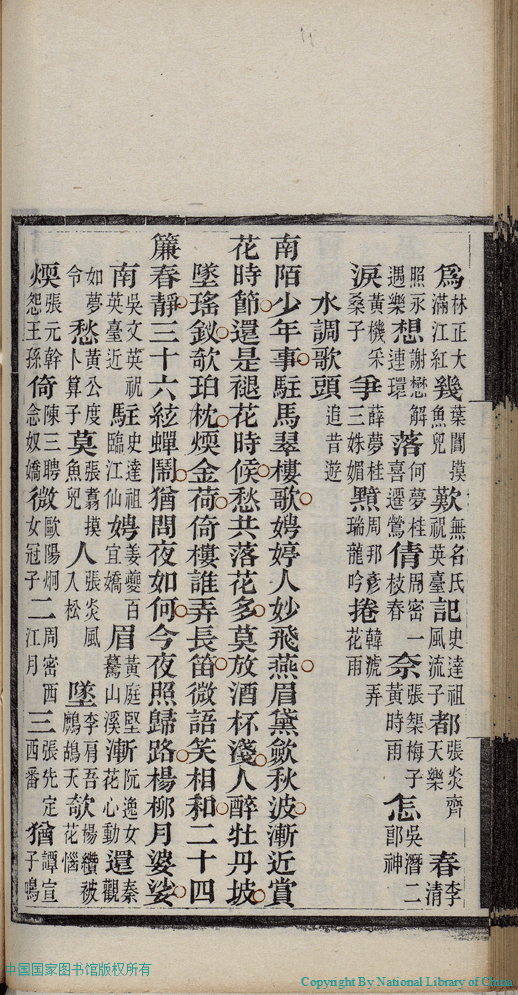 為林正大滿江紅幾葉閶摸魚兒歎無名氏祝英臺記史達祖風流子都張炎齊天樂春李清
照永遇樂想謝懋解連環落何夢桂喜遷鶯倩周密一枝春奈張榘梅子黃時雨怎吳潛二郎神
淚黃機采桑子爭薛夢桂三姝媚周邦彥瑞龍吟捲韓淲弄花雨
水調歌頭 追昔遊
南陌少年事駐馬翠樓歌娉婷人妙飛燕眉黛斂秋波漸近賞
花時節還是褪花時候愁共落花多莫放酒杯淺人醉牡丹坡
墜瑤釵欹珀枕煗金荷倚樓誰弄長笛微語笑相和二十四
簾春靜三十六絃蟬鬧猶問夜如何今夜照歸路楊柳月婆娑
南吳文英祝英臺近駐史達祖臨江仙娉姜夔百宜嬌眉黃庭堅驀山溪漸阮逸女花心動還秦觀
如夢令愁黃公度卜算子莫張翥摸魚兒人張炎風入松墜李肩吾鷓鴣天欹楊纘被花惱
煗張元幹怨王孫倚陳三聘念奴嬌微歐陽炯女冠子二周密西江月三張先定西番猶譚宣子鳴
中国国家图书馆版权所有
Copyright By National Library of China